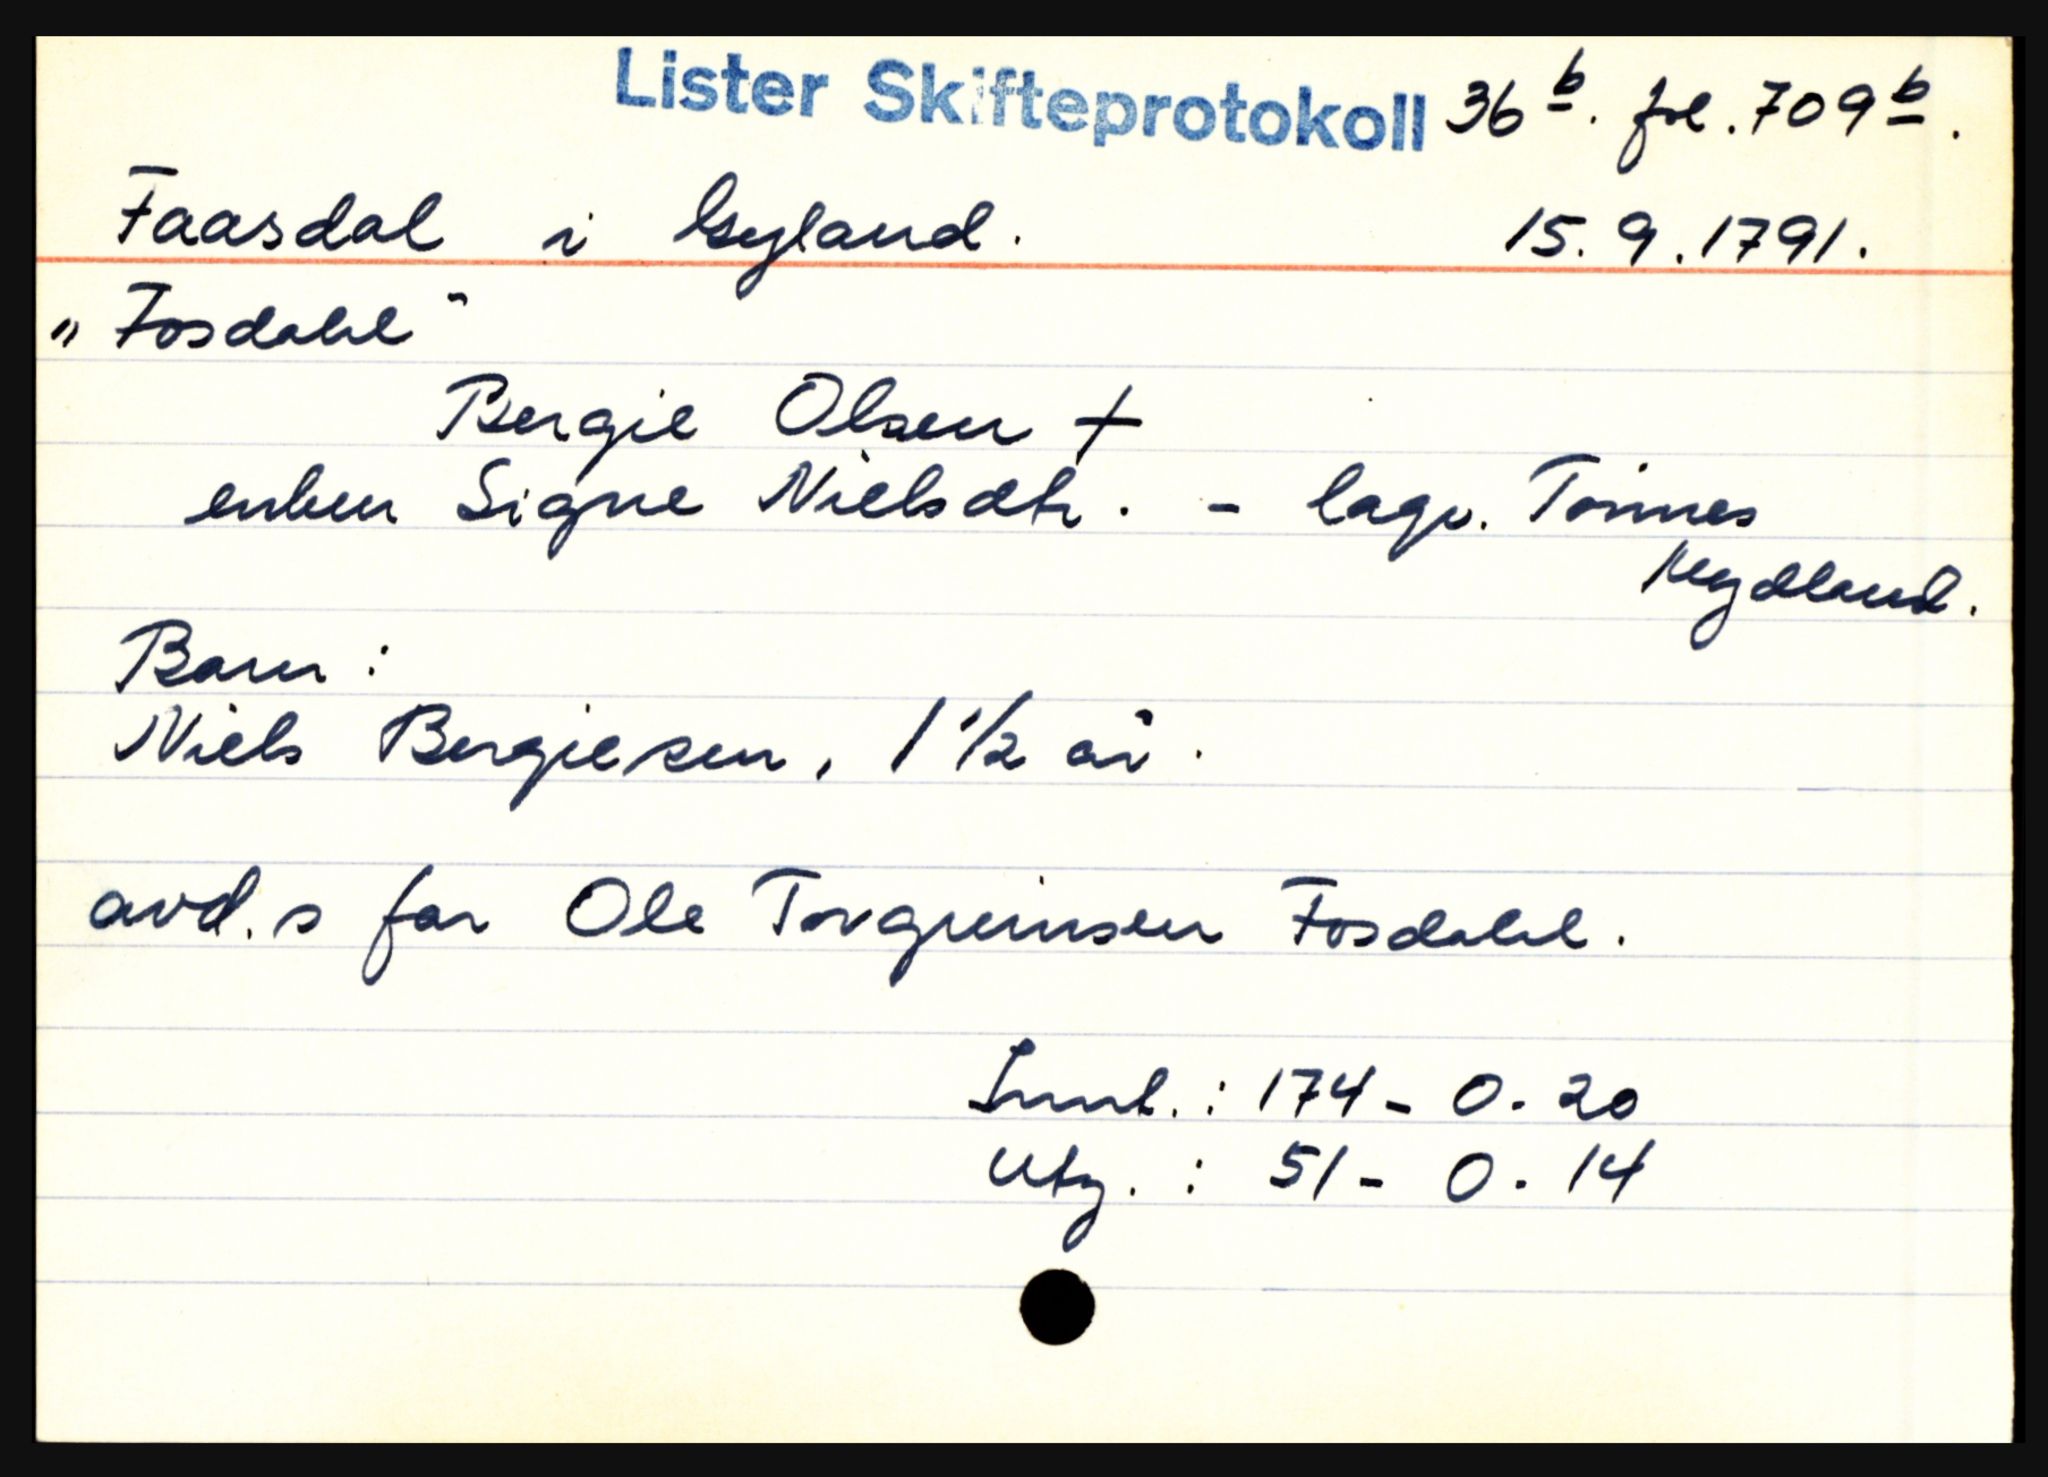 Lister Skifteprotokoll 36 b. fol. 709 b.
Faasdal i Gyland. 15. 9. 1791.
„Fosdahl"
Bergie Olsen †
enken Signe Nielsdtr. - lagv. Tønnes
Nydland.
Barn:
Niels Bergiesen, 1 1/2 år.
avd. s far Ole Torgrimsen Fosdahl.
Innt.: 174 - 0 - 20
Utg. : 51 - 0 - 14